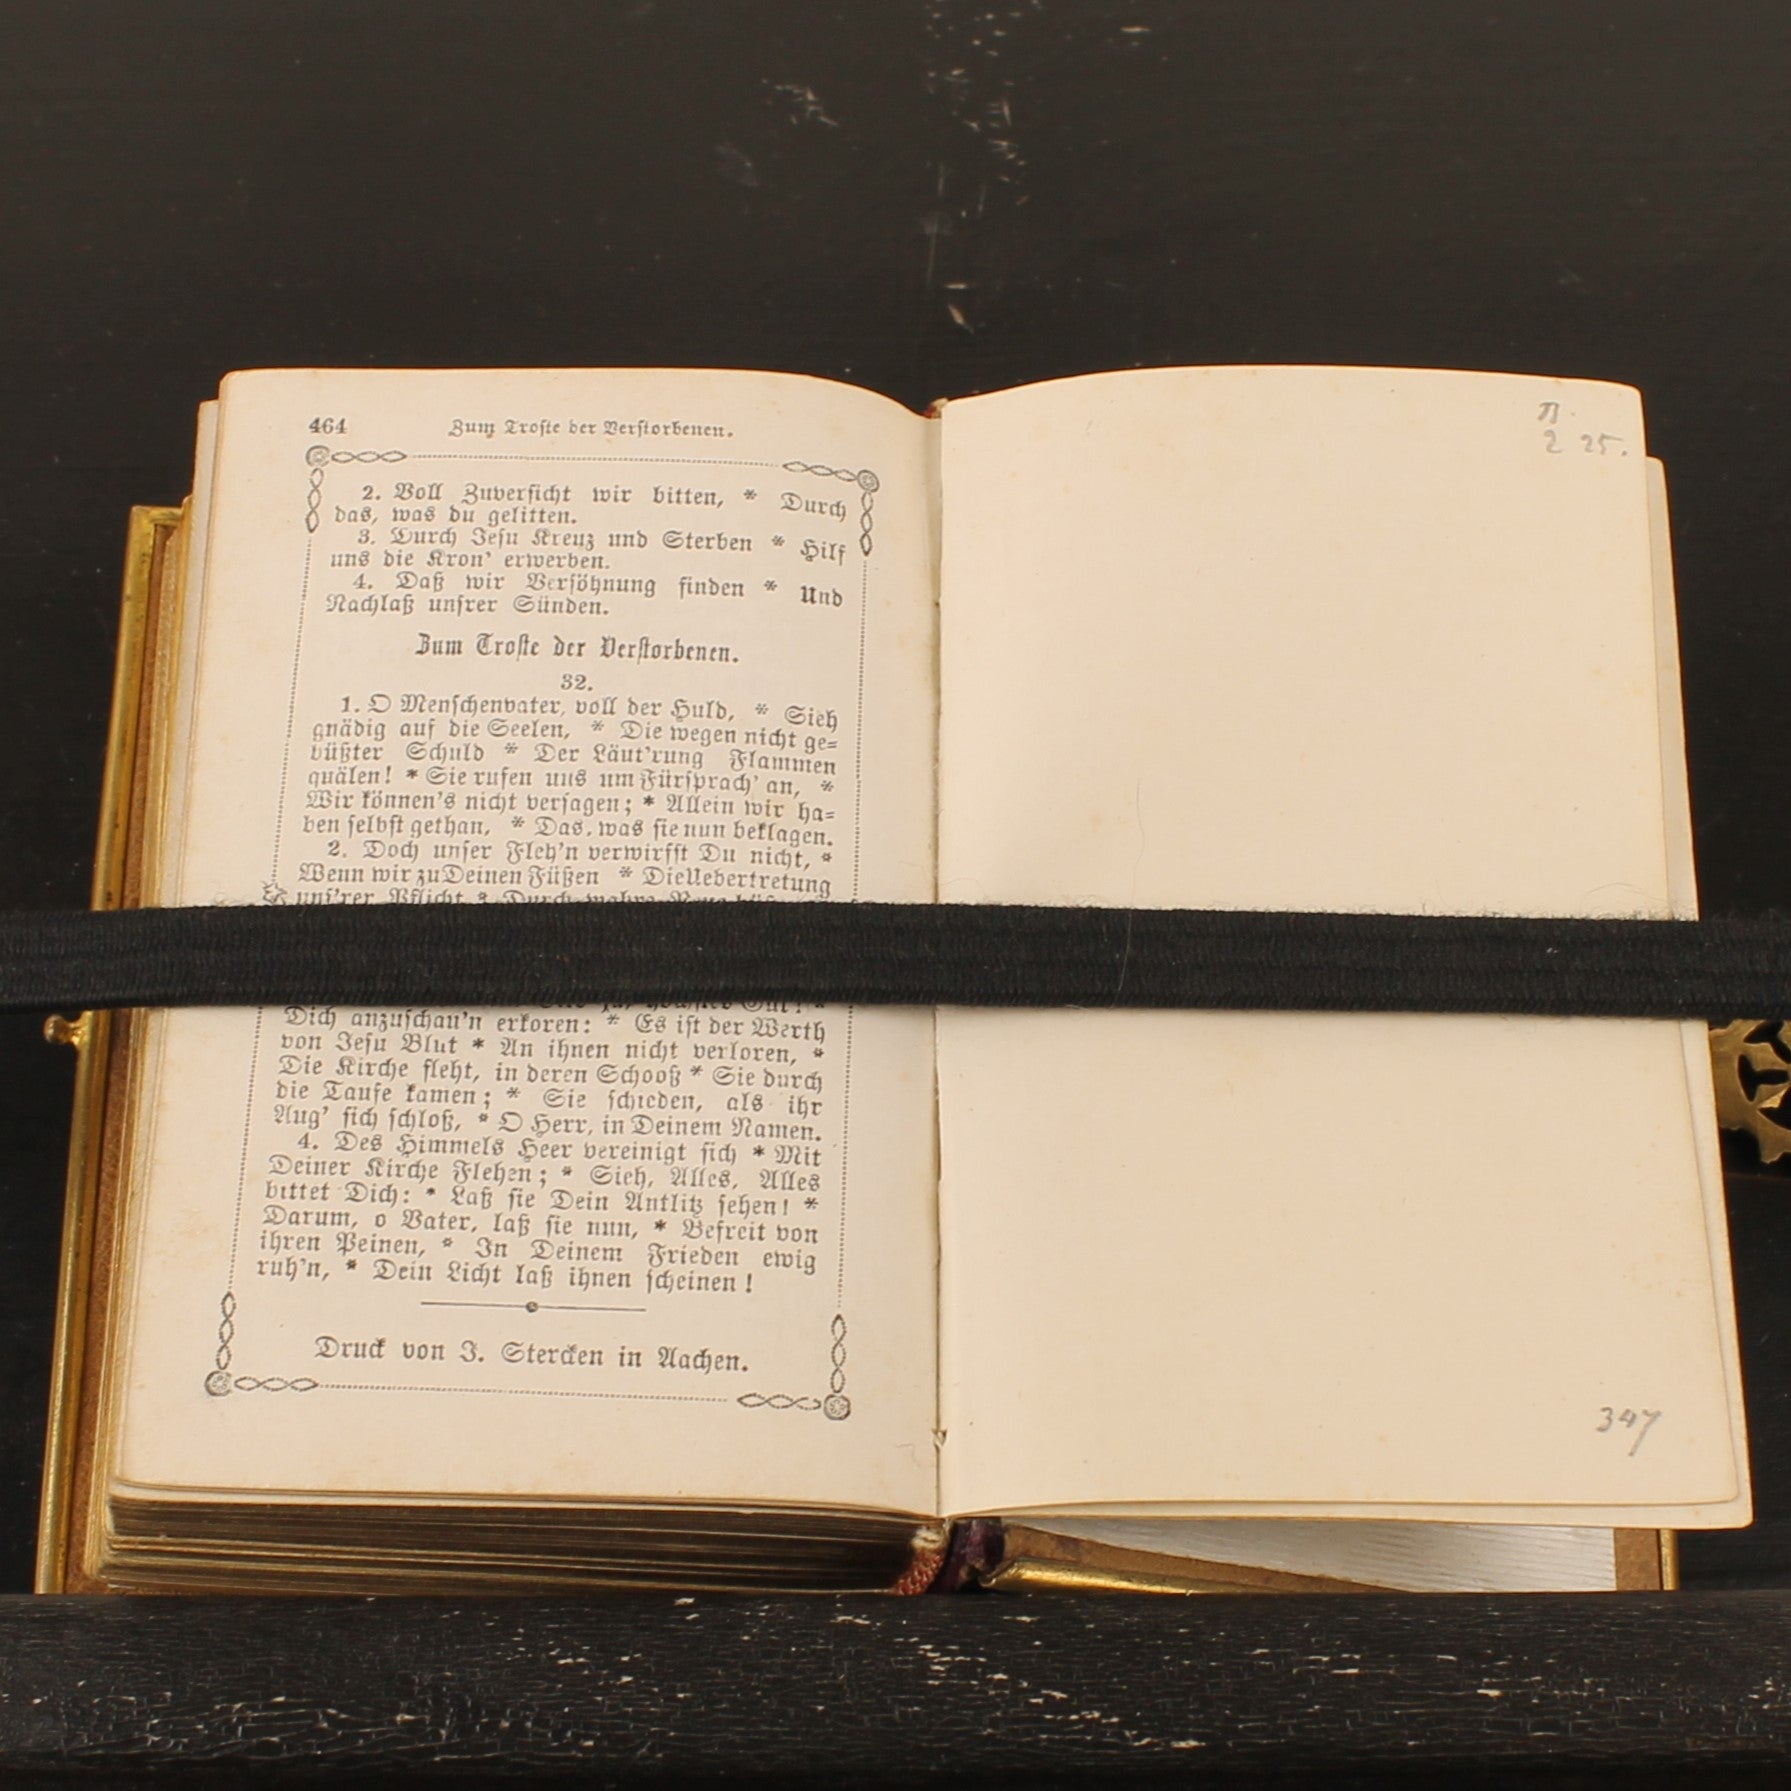 464 Zum Troste der Verstorbenen.
2. Voll Zuversicht wir bitten, * Durch
das, was du gelitten.
3. Durch Jesu Kreuz und Sterben * Hilf
uns die Kron' erwerben.
4. Daß wir Versöhnung finden * Und
Nachlaß unsrer Sünden.
Zum Troste der Verstorbenen.
32.
1. O Menschenvater, voll der Huld, * Sieh
gnädig auf die Seelen, * Die wegen nicht ge=
büßter Schuld * Der Läut'rung Flammen
quälen! * Sie rufen uns um Fürsprach' an, *
Wir können's nicht versagen; * Allein wir ha=
ben selbst gethan, * Das, was sie nun beklagen.
2. Doch unser Fleh'n verwirfst Du nicht, *
Wenn wir zu Deinen Füßen * Die Uebertretung
uns'rer Pflicht * Durch wahre
Dich anzuschau'n erkoren: * Es ist der Werth
von Jesu Blut * An ihnen nicht verloren, *
Die Kirche fleht, in deren Schooß * Sie durch
die Taufe kamen; * Sie schieden, als ihr
Aug' sich schloß, * O Herr, in Deinem Namen.
4. Des Himmels Heer vereinigt sich * Mit
Deiner Kirche Flehen; * Sieh, Alles, Alles
bittet Dich: * Laß sie Dein Antlitz sehen! *
Darum, o Vater, laß sie nun, * Befreit von
ihren Peinen, * In Deinem Frieden ewig
ruh'n, * Dein Licht laß ihnen scheinen!
Druck von J. Stercken in Aachen.
2 25.
347